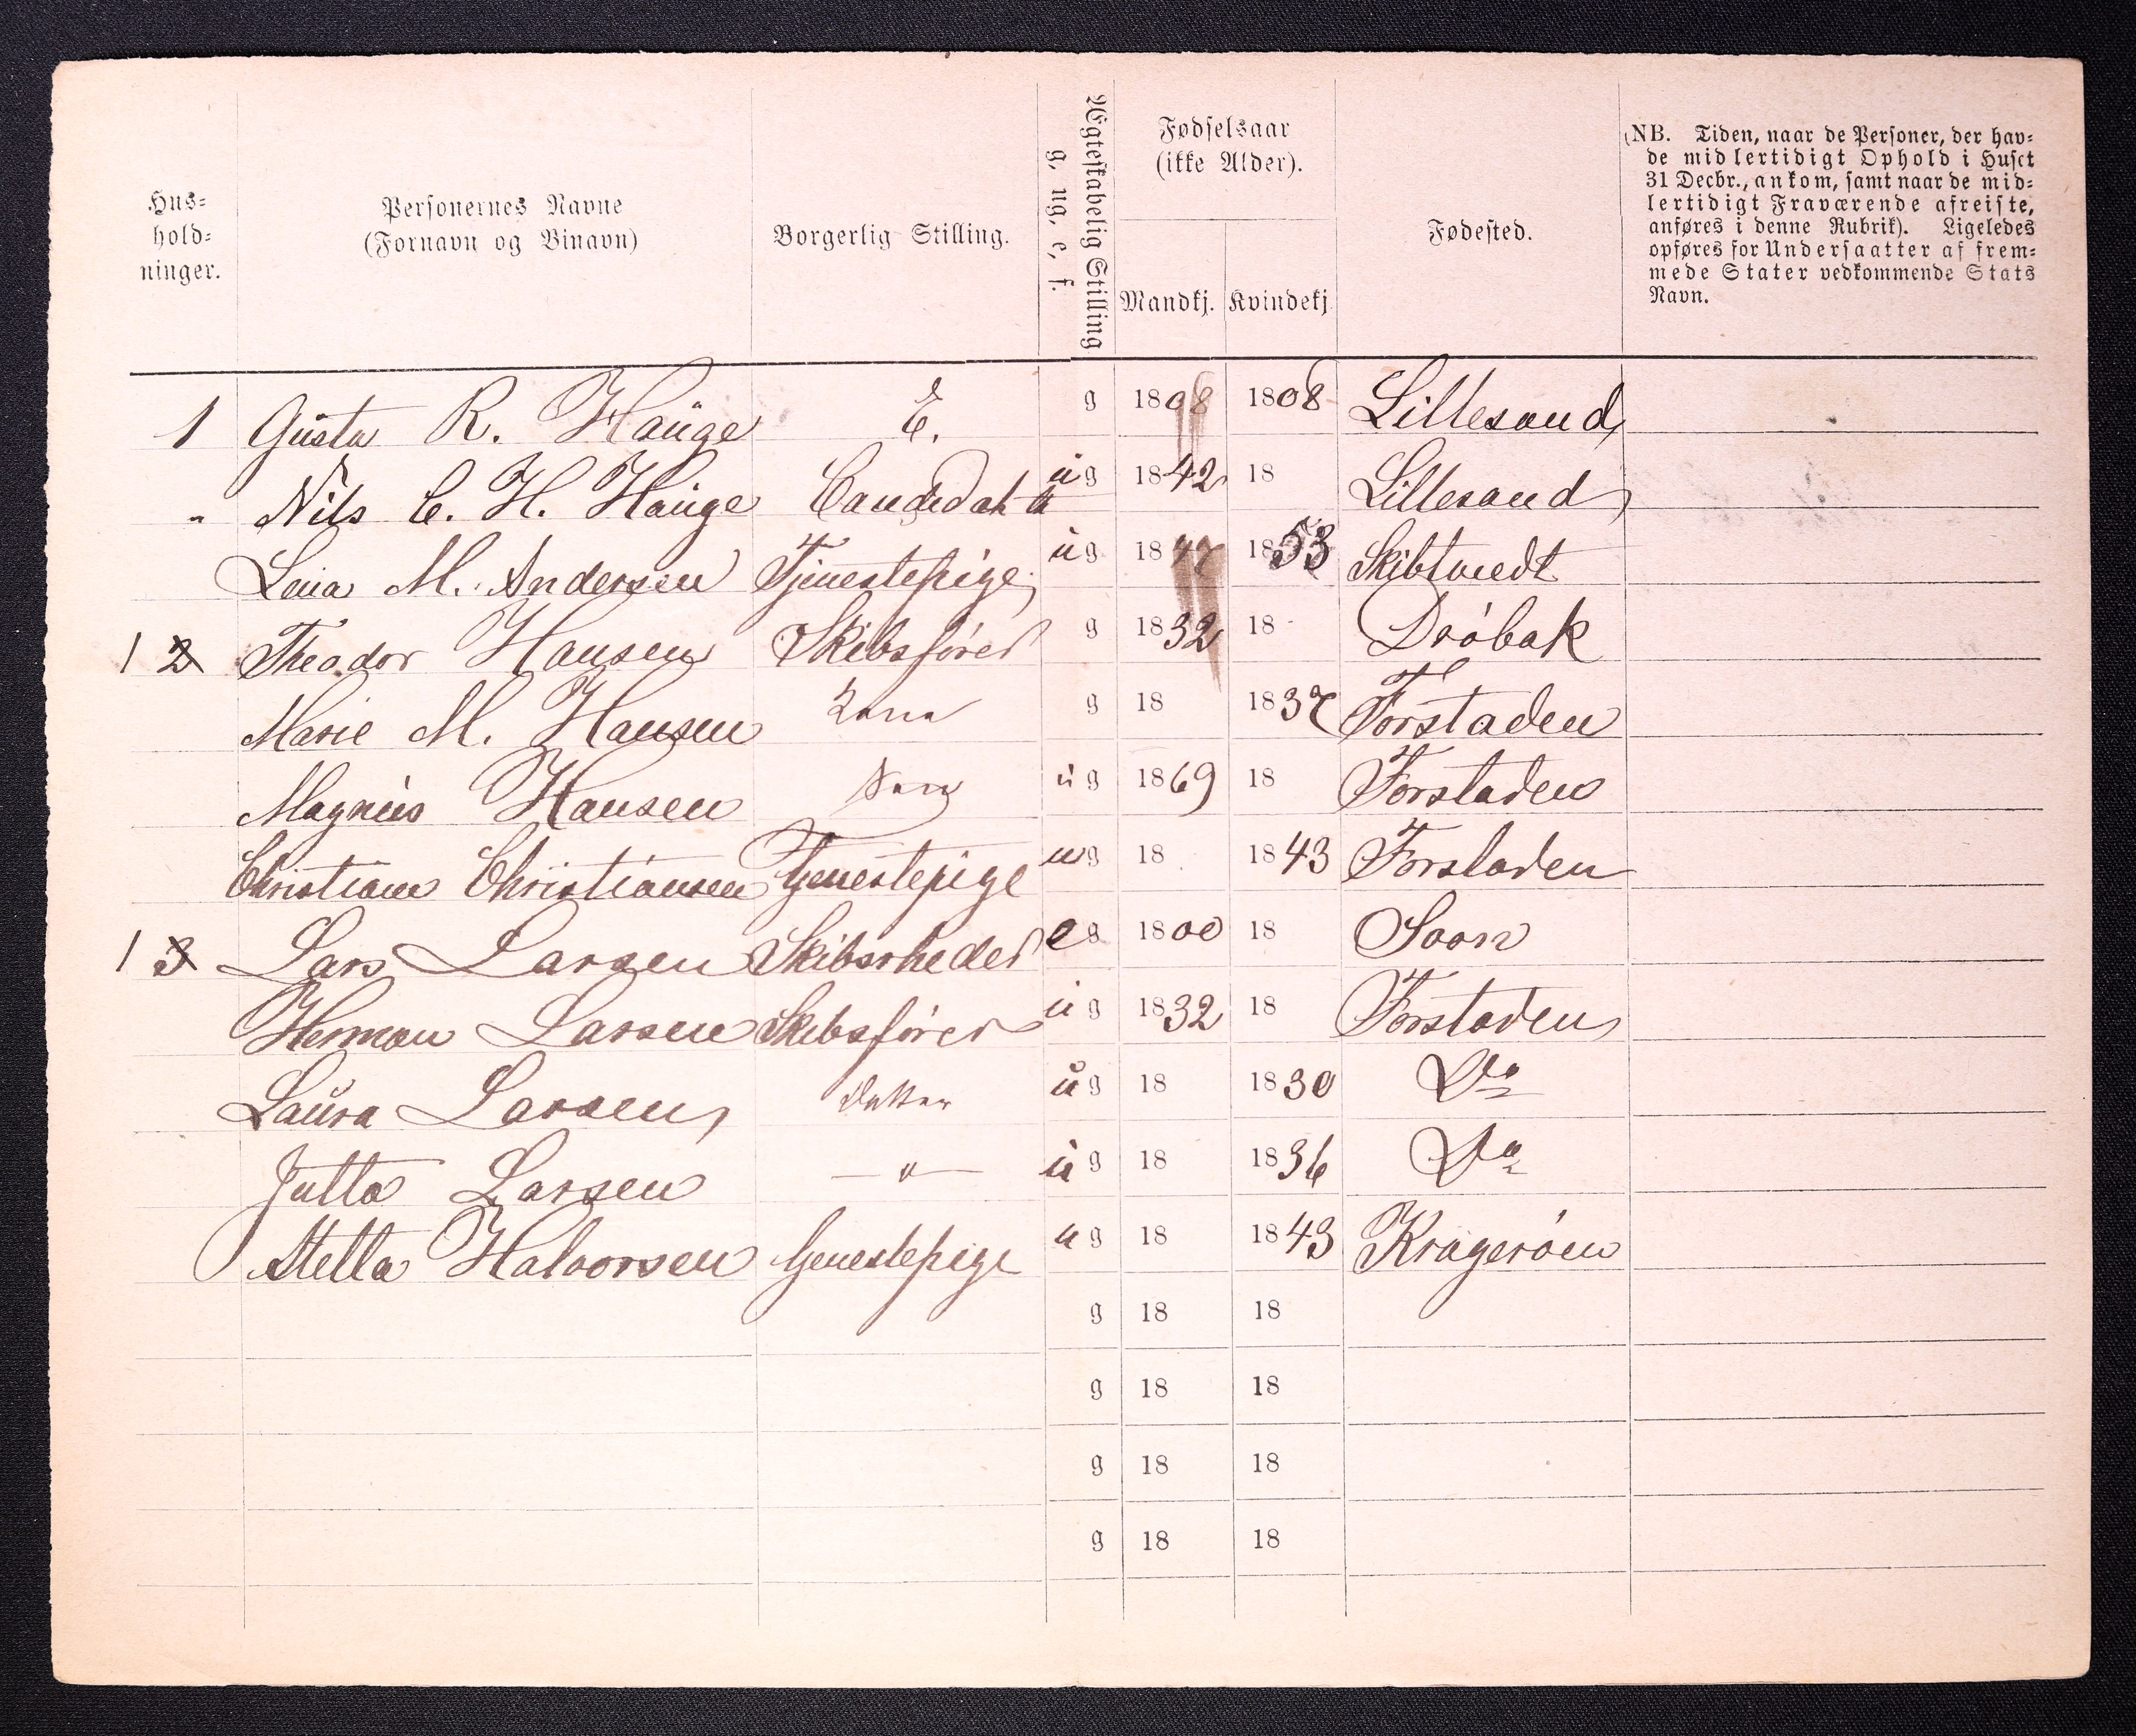 Hus=
hold=
ninger.
Personernes Navne
(Fornavn og Binavn)
Borgerlig Stilling.
Ægteskabelig Stilling
g, ug, e, f.
Fødselsaar
(ikke Alder).
Mandkj. Kvindekj
Fødested.
(NB. Tiden, naar de Personer, der hav=
de midlertidigt Ophold i Huset
31 Decbr., ankom, samt naar de mid=
lertidigt Fraværende afreiste,
anføres i denne Rubrik). Ligeledes
opføres for Undersaatter af frem=
mede Stater vedkommende Stats
Navn.
1 Gusta R. Hauge E. g 1808 1808 Lillesand
" Nils C. H. Hauge Candidat ug 1842 18 Lillesand
Lena M. Andersen Tjenestepige ug 1847 1853 Skibtvedt
1 2 Theodor Hansen Skibsfører g 1832 18 Dröbak
Marie M. Hansen Kona g 18 1837 Forstaden
Magnus Hansen Søn ug 1869 18 Forstaden
Christiane Christiansen Tjenestepige ug 18 1843 Forstaden
1 3 Lars Larsen Skibsrheder e g 1800 18 Soon
Herman Larsen Skibsfører ug 1832 18 Forstaden
Laura Larsen Datter ug 18 1830 Do
Jutta Larsen — " — ug 18 1836 Do
Mella Halvorsen Tjenestepige ug 18 1843 Kragerøen
g 18 18
g 18 18
g 18 18
g 18 18